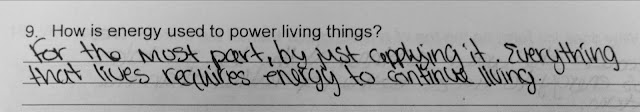 9. How is energy used to power living things?
For the most part, by just applying it. Everything
that lives requires energy to continue living.